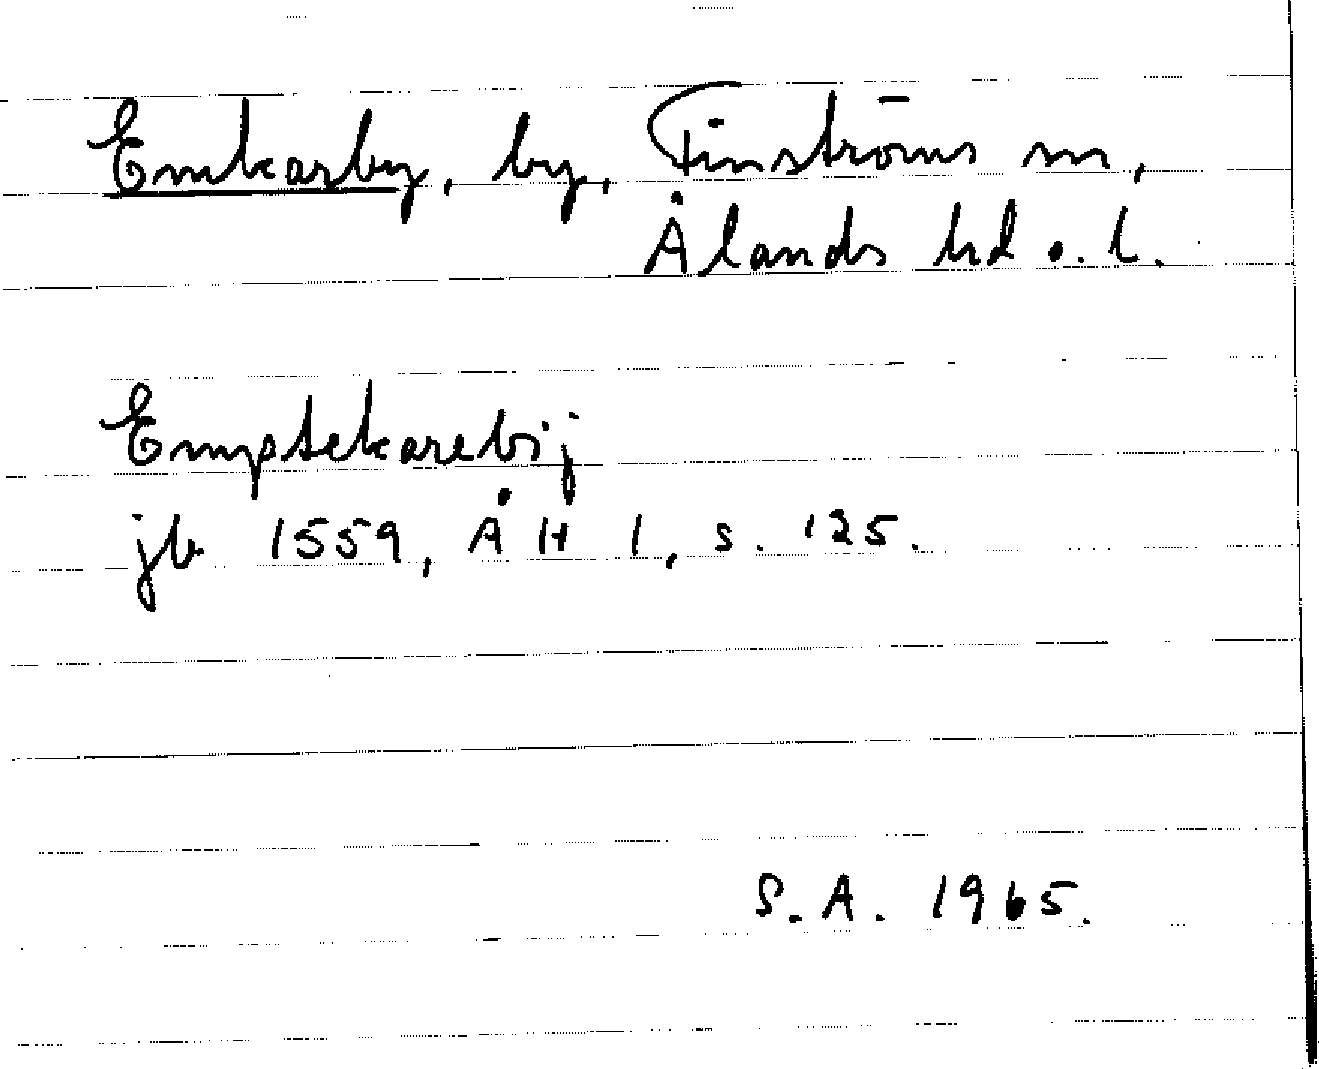 Emkarby, by, Finströms sn,
Ålands hd o. l.
Emptekarebij
jb 1559, ÅH 1, s. 125.
S.A. 1965.